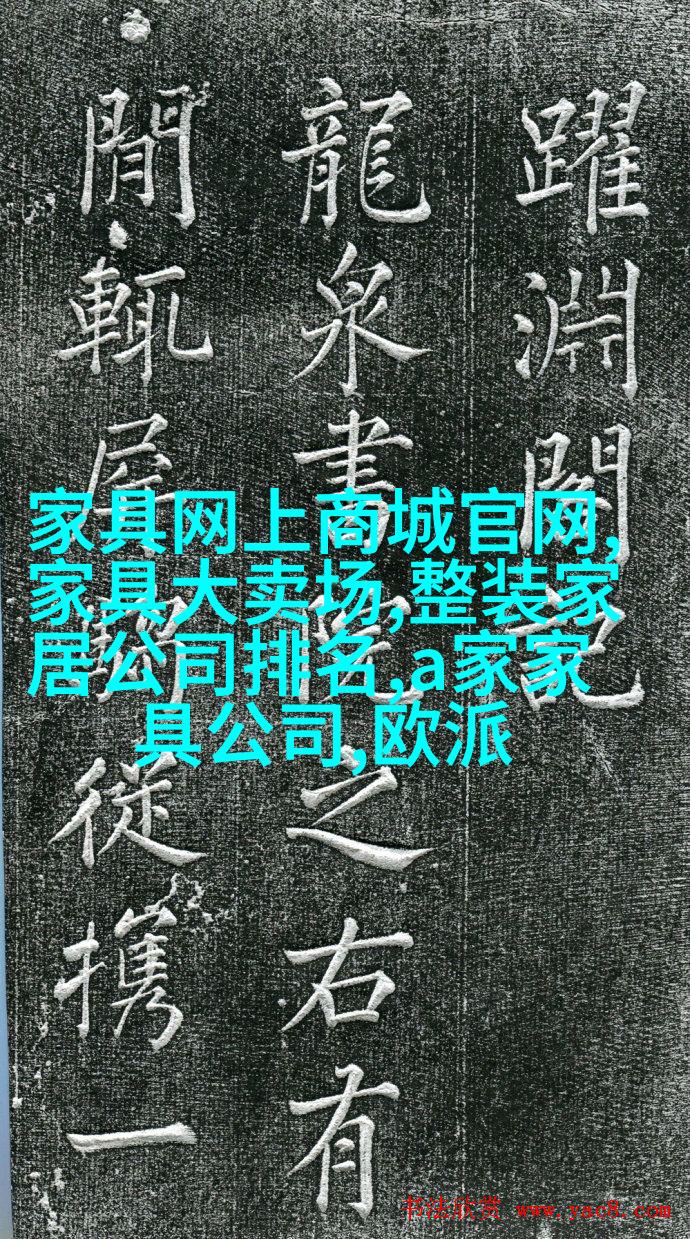 躍淵閣記
龍泉書院之右有
閒輒屏騶從攜一
家具网上商城官网,
家具大卖场,整装家
居公司排名,a家家
具公司,欧派
书法欣赏 www.yac8.com